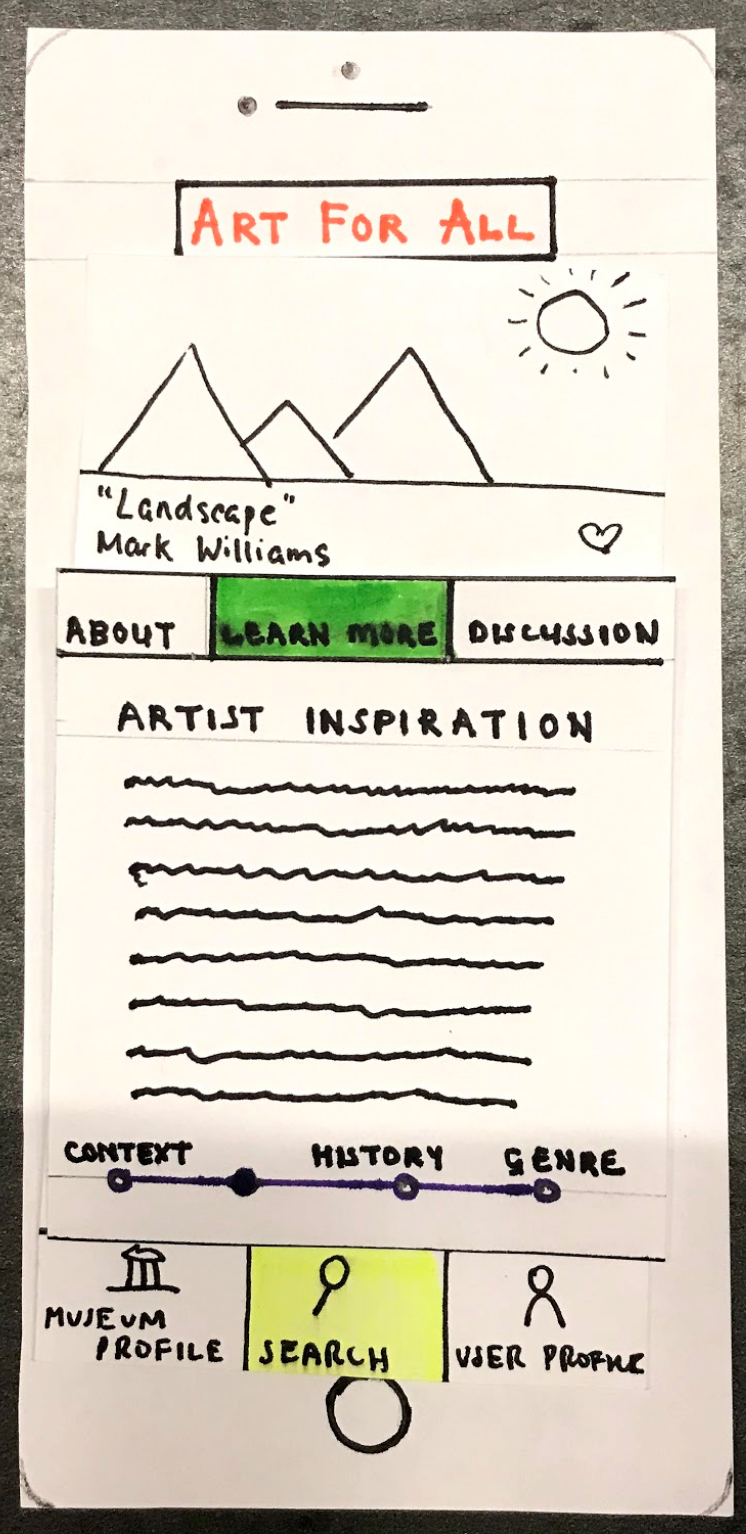 ART FOR ALL
"Landscape"
Mark Williams
ABOUT LEARN MORE DISCUSSION
ARTIST INSPIRATION
CONTEXT HISTORY GENRE
MUSEUM
PROFILE
SEARCH
USER PROFILE